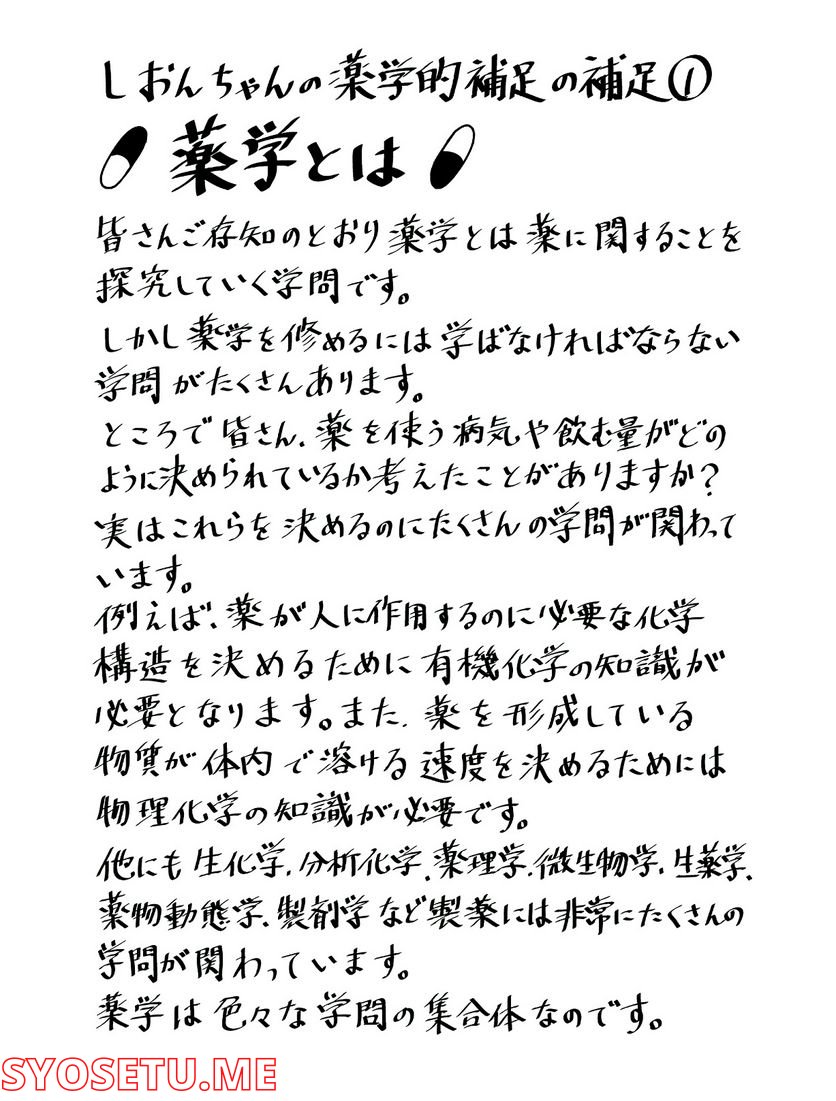 しおんちゃんの薬学的補足の補足①
薬学とは
皆さんご存知のとおり薬学とは薬に関することを
探究していく学問です。
しかし薬学を修めるには学ばなければならない
学問がたくさんあります。
ところで皆さん、薬を使う病気や飲む量がどの
ように決められているか考えたことがありますか?
実はこれらを決めるのにたくさんの学問が関わって
います。
例えば、薬が人に作用するのに必要な化学
構造を決めるために有機化学の知識が
必要となります。また、薬を形成している
物質が体内で溶ける速度を決めるためには
物理化学の知識が必要です。
他にも生化学、分析化学、薬理学、微生物学、生薬学、
薬物動態学、製剤学など製薬には非常にたくさんの
学問が関わっています。
薬学は色々な学問の集合体なのです。
SYOSETU.ME